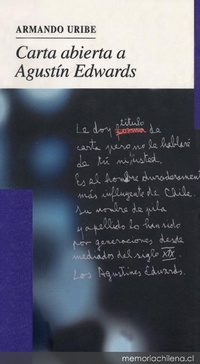 ARMANDO URIBE
Carta abierta a
Agustín Edwards
título
Le doy forma de
carta pero no le hablaré
de tú ni usted.
Es el hombre duraderamente
más influyente de Chile.
Su nombre de pila
y apellido lo han sido
por generaciones desde
mediados del siglo XIX
Los Agustines Edwards.
memoriachilena.cl